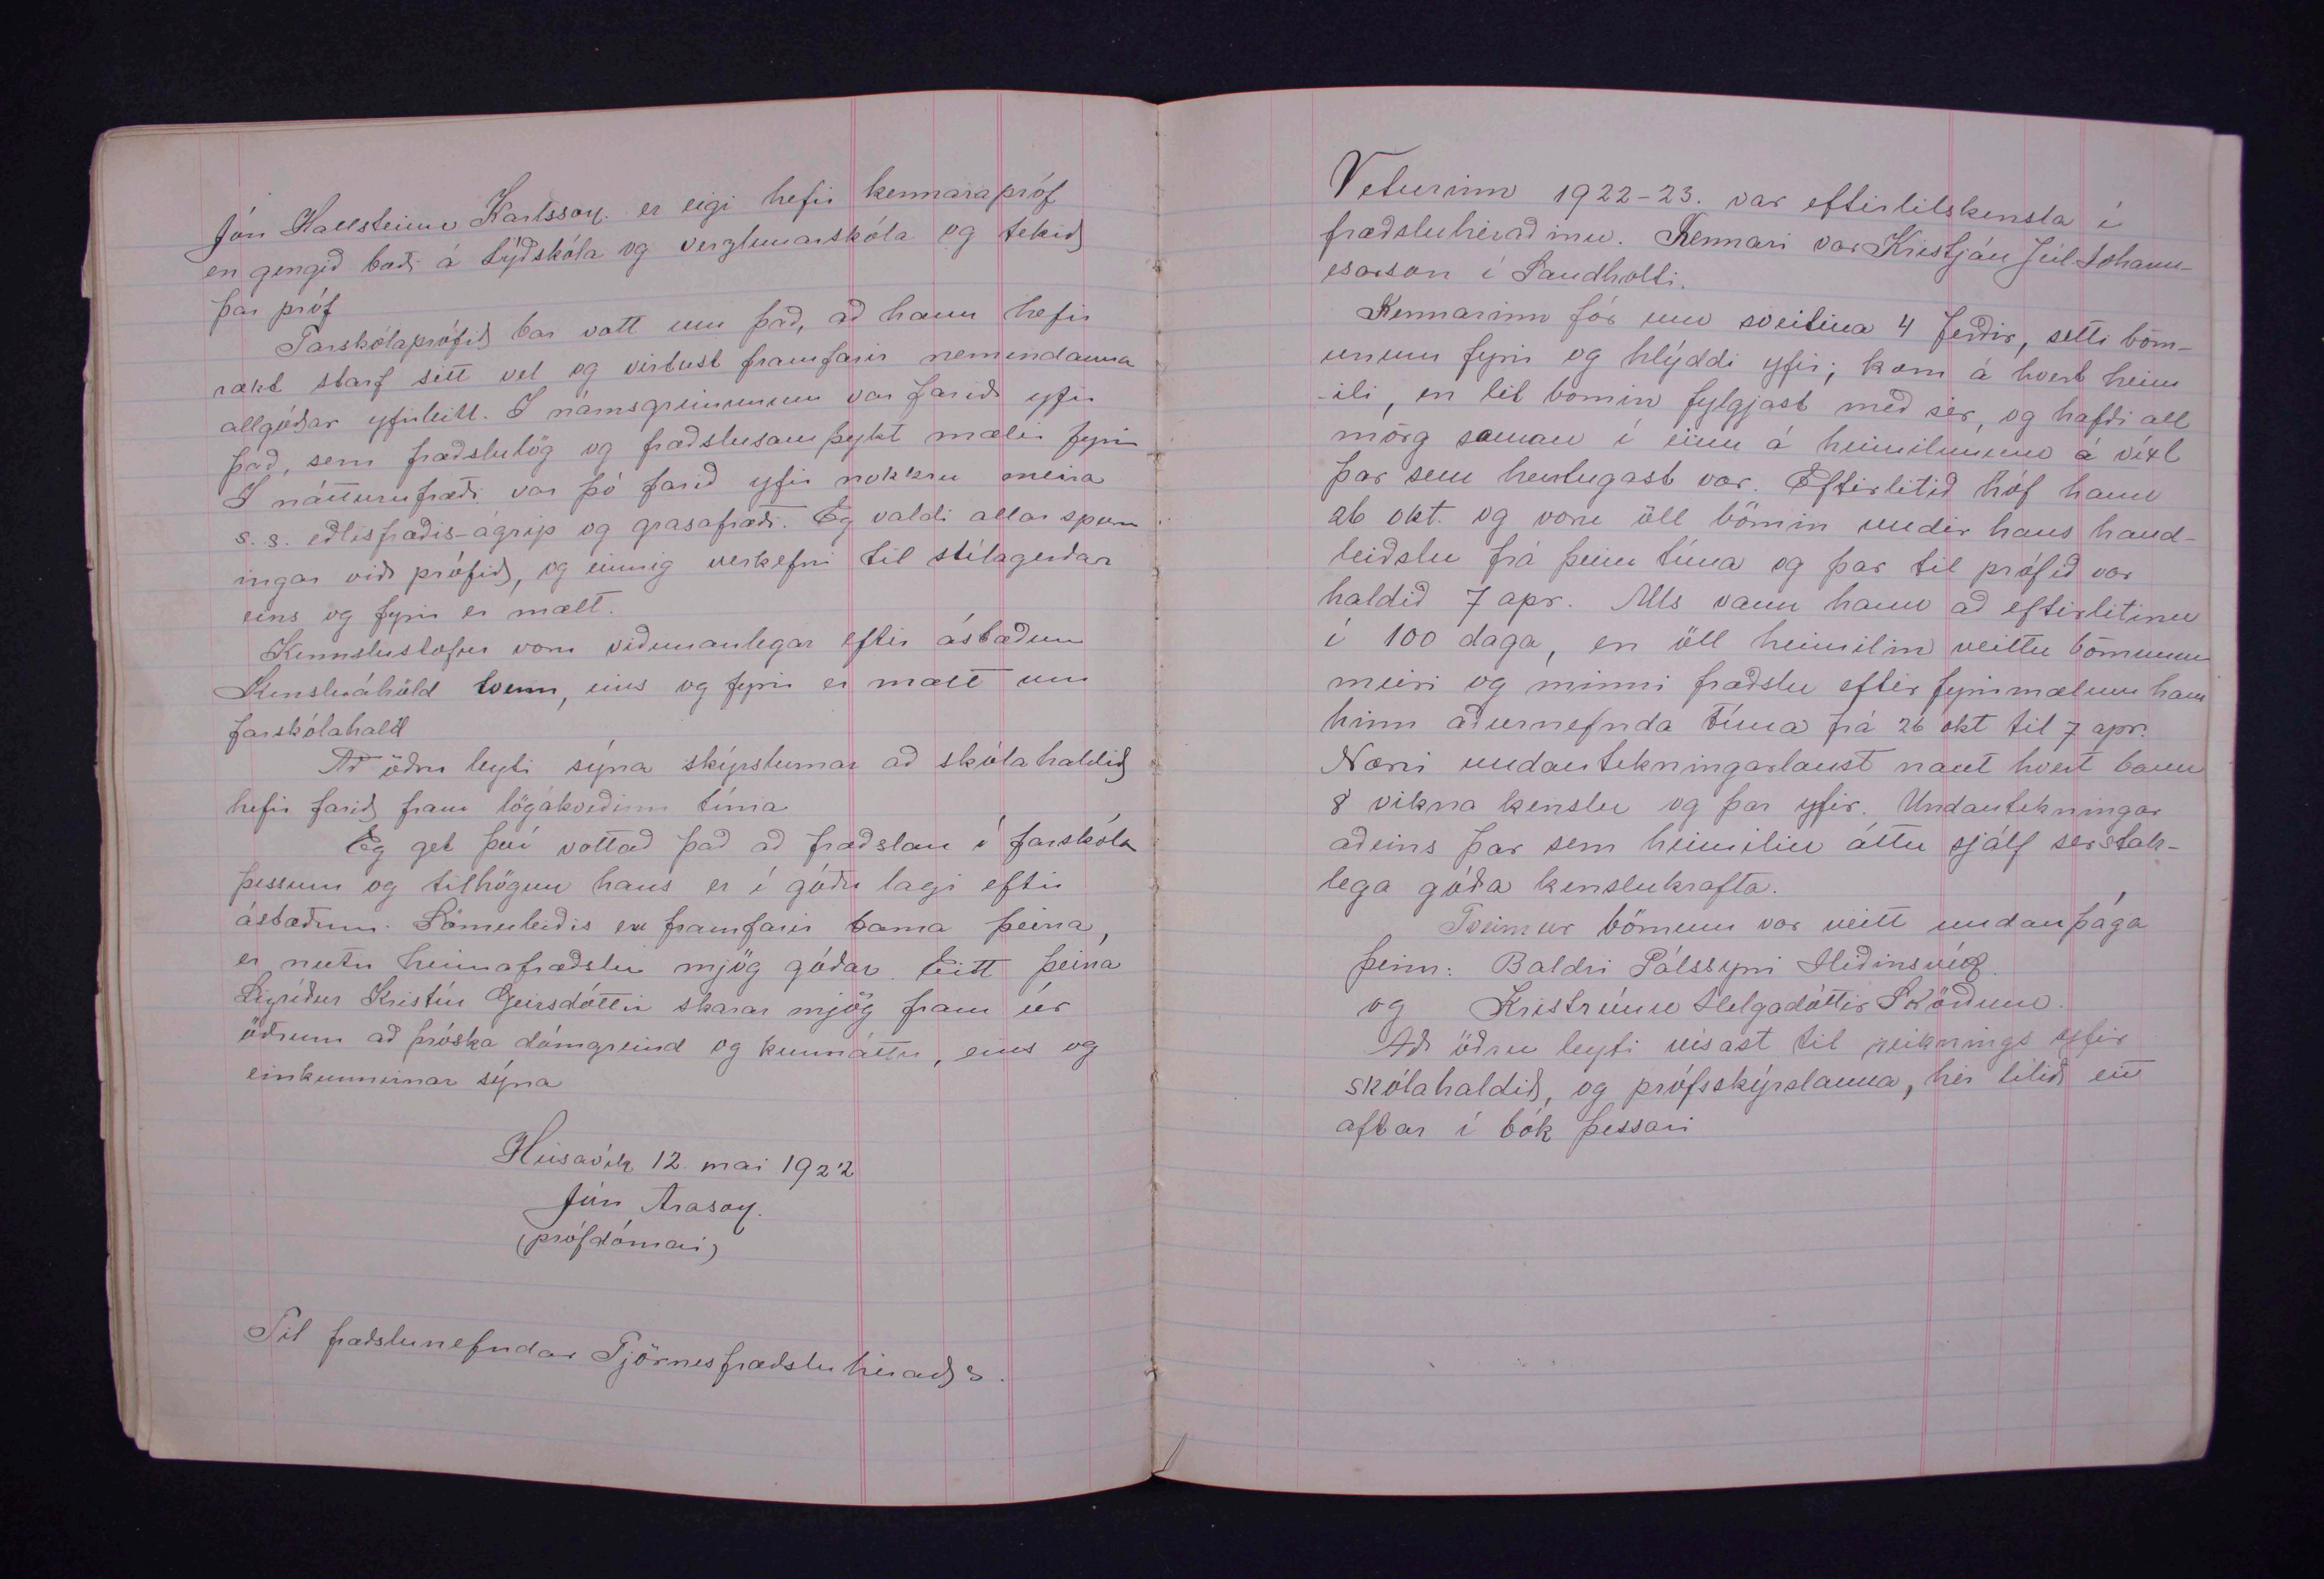 Jón Hallsteinn Karlsson. er eigi hefir kennarapróf
en gengið bæði á Lýðskóla og verzlunarskóla og tekið
þar próf
Farskólaprófið bar vott um það, að hann hefir
rækt starf sitt vel og virtust framfarir nemendanna
allgóðar yfirleitt. I námsgreinunum var farið yfir
það, sem fræðslulög og fræðslusamþykt mælir fyrir
I náttúrufræði var þó farið yfir nokkru meira
s.s. eðlisfræðis-ágrip og grasafræði. Eg valdi allar spurn
ingar við prófið, og einnig verkefni til stílagerðar
eins og fyrir er mælt.
Kennslustofur voru viðunanlegar eftir ástæðum
Kensluáhöld voru, eins og fyrir er mælt um
farskólahald
Að öðru leyti sýna skýrslurnar að skólahaldið
hefir farið fram lögákveðinn tíma
Eg get því vottað það að fræðslan í farskóla
þessum og tilhögun hans er í góðu lagi eftir
ástæðum. Sömuleiðis eru framfarir barna þeirra,
er nutu heimafræðslu mjög góðar. Eitt þeirra
Sigríður Kristín Geirsdóttir skarar mjög fram úr
öðrum að þroska dómgreind og kunnáttu, eins og
einkunnirnar sýna
Húsavík 12. mai 1922
Jón Arason.
(prófdómari)
Til fræðslunefndar Tjörnesfræðsluhéraðs.
Veturinn 1922-23. var eftirlitskensla í
fræðsluhéraðinu. Kennari var Kristján Júl Jóhann-
esarson í Sandholti.
Kennarinn fór um sveitina 4 ferðir, setti börn-
unum fyrir og hlýddi yfir; kom á hvert heim
-ili, en lét börnin fylgjast með sér, og hafði all
mörg saman í einu á heimilunum á víxl
þar sem hentugast var. Eftirlitið hóf hann
26 okt. og voru öll börnin undir hans hand-
leiðslu frá þeim tíma og þar til prófið var
haldið 7 apr. Alls vann hann að eftirlitinu
í 100 daga, en öll heimilin veittu börnunum
meiri og minni fræðslu eftir fyrirmælum hans
hinn áðurnefnda tíma frá 26 okt til 7 apr.
Næri undantekningarlaust naut hvert barn
8 vikna kenslu og þar yfir. Undantekningar
aðeins þar sem heimilin áttu sjálf sérstak-
lega góða kenslukrafta.
Tveimur börnum var veitt undanþága
þeim: Baldri Pálssyni Héðinsvík
og Kristrúnu Helgadóttir Sköðum.
Að öðru leyti vísast til reiknings yfir
skólahaldið, og prófsskýrslanna, hér lítið eitt
aftar í bók þessari